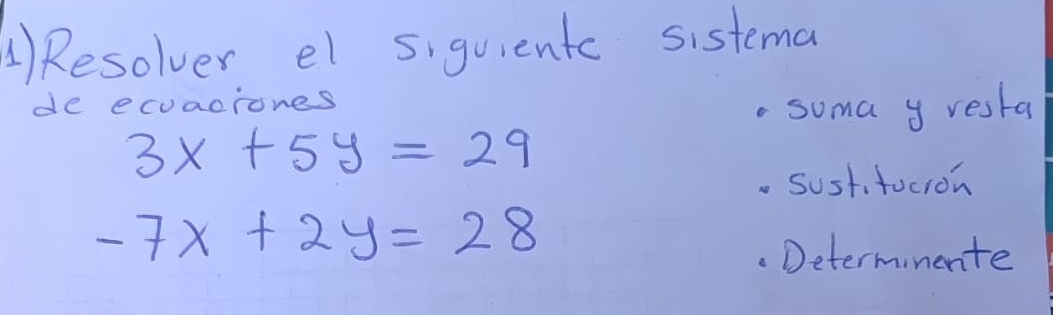 1) Resolver el siguiente sistema
de ecuaciones
3x + 5y = 29
-7x + 2y = 28
• suma y resta
• Sustitución
• Determinente